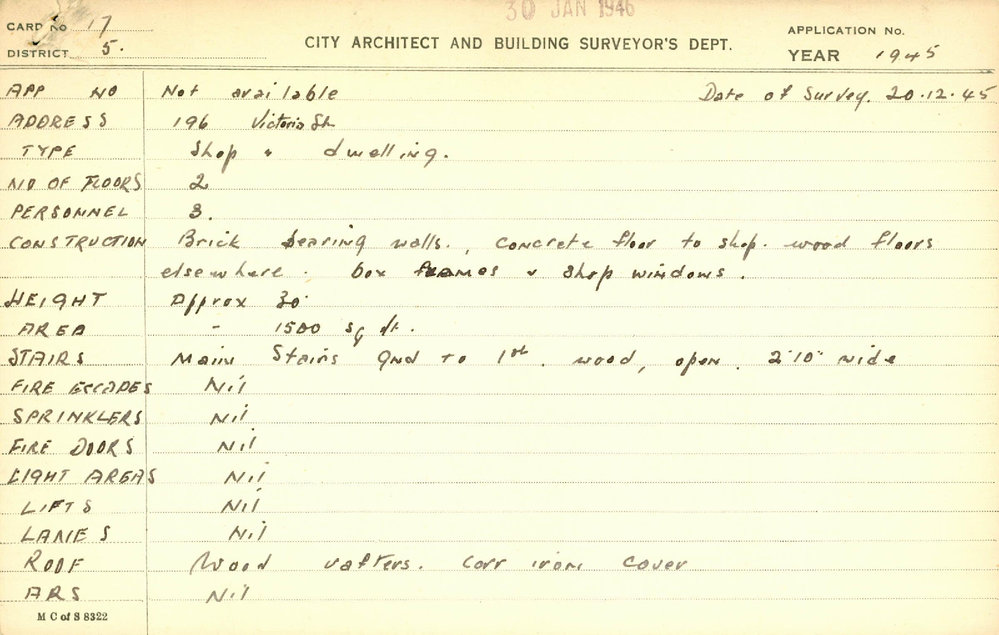 30 JAN 1946
CARD No 17
DISTRICT 5.
CITY ARCHITECT AND BUILDING SURVEYOR'S DEPT.
APPLICATION No.
YEAR 1945
APP NO Not available Date of Survey. 20.12.45
ADDRESS 196 Victoria St
TYPE Shop & dwelling.
NO OF FLOORS 2
PERSONNEL 3.
CONSTRUCTION Brick bearing walls., concrete floor to shop. wood floors
elsewhere. box frames & shop windows.
HEIGHT Approx 30'
AREA - 1500 sq ft.
STAIRS Main Stairs gnd to 1st. wood, open. 2'10" wide
FIRE ESCAPES Nil
SPRINKLERS Nil
FIRE DOORS Nil
LIGHT AREAS Nil
LIFTS Nil
LANES Nil
ROOF Wood rafters. Corr iron cover
ARS Nil
M C of S 8322